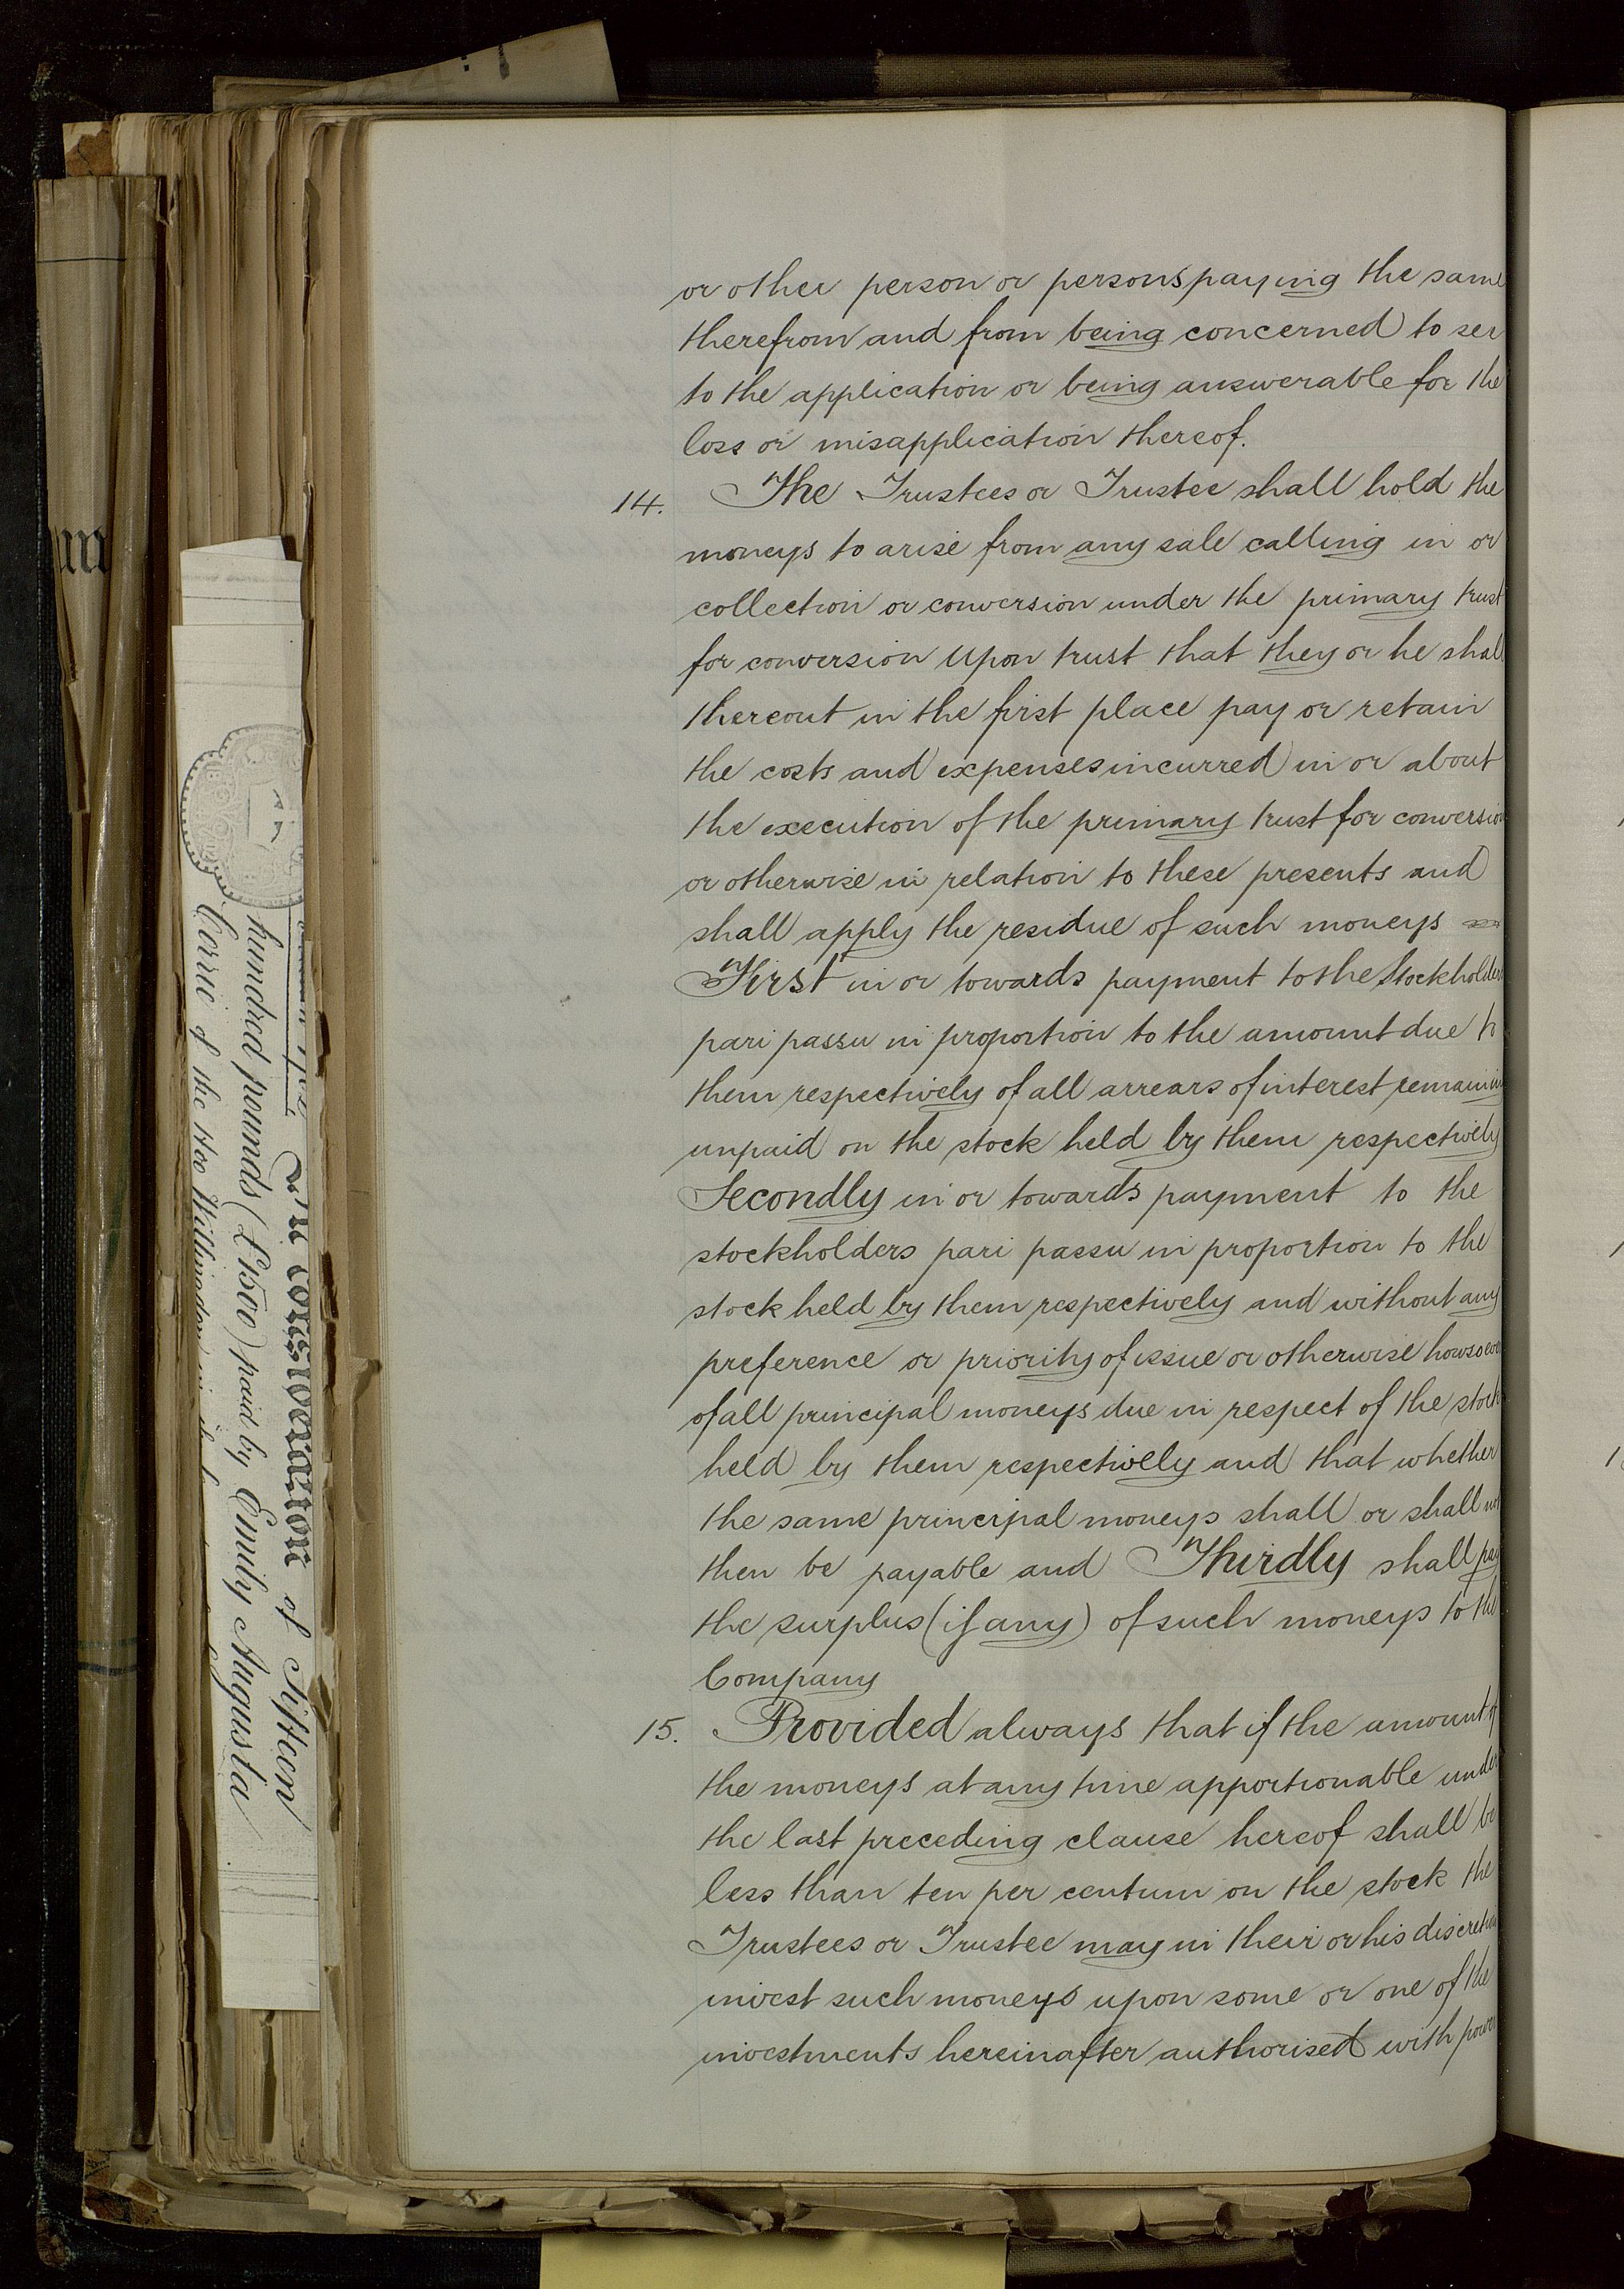 or other person or persons paying the same
therefrom and from being concerned to see
to the application or being answerable for the
loss or misapplication thereof.
14. The Trustees or Trustee shall hold the
moneys to arise from any sale calling in or
collection or conversion under the primary trust
for conversion Upon trust that they or he shall
thereout in the first place pay or retain
the costs and expenses incurred in or about
the execution of the primary trust for conversion
or otherwise in relation to these presents and
shall apply the residue of such moneys
First in or towards payment to the Stockholders
pari passu in proportion to the amount due to
them respectively of all arrears of interest remaining
unpaid on the stock held by them respectively
Secondly in or towards payment to the
stockholders pari passu in proportion to the
stock held by them respectively and without any
preference or priority of issue or otherwise howsoever
of all principal moneys due in respect of the stock
held by them respectively and that whether
the same principal moneys shall or shall not
then be payable and Thirdly shall pay
the surplus (if any) of such moneys to the
Company
15. Provided always that if the amount of
the moneys at any time apportionable under
the last preceding clause hereof shall be
less than ten per centum on the stock the
Trustees or Trustee may in their or his discretion
invest such moneys upon some or one of the
investments hereinafter authorised with power
In consideration of Fifteen
hundred pounds (£1500) paid by Emily Augusta
Corrie of the Hoo Willingdon